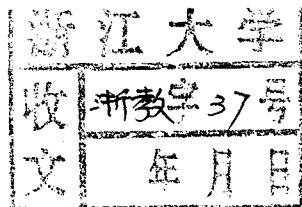 浙江大学
收文
浙教字37号
年月日